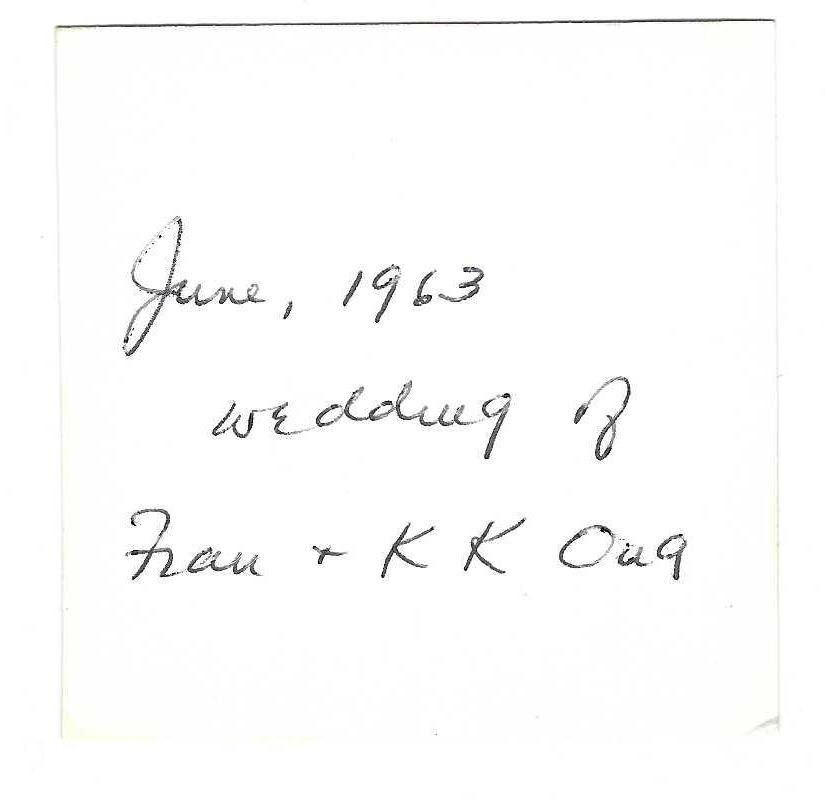 June, 1963
wedding of
Fran + K K Ong